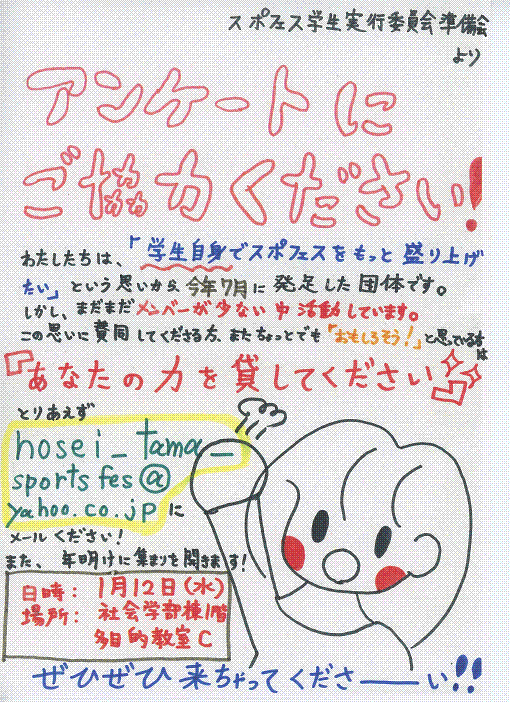 スポフェス学生実行委員会準備会
より
アンケートに
ご協力ください!
わたしたちは、「学生自身でスポフェスをもっと盛り上げ
たい」という思いから今年7月に発足した団体です。
しかし、まだまだメンバーが少ない中活動しています。
この思いに賛同してくださる方、またちょっとでも「おもしろそう!」と思っている方は
『あなたの力を貸してください』
とりあえず
hosei_tama_
sportsfes@
yahoo.co.jpに
メールください!
また、年明けに集まりを開きます!
日時:1月12日(水)
場所:社会学部棟1階
多目的教室C
ぜひぜひ来ちゃってくださーーい!!